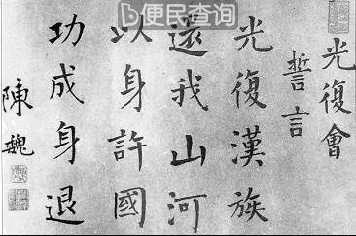 光復會
誓言
光復漢族
還我山河
以身許國
功成身退
陳魏
便民查询